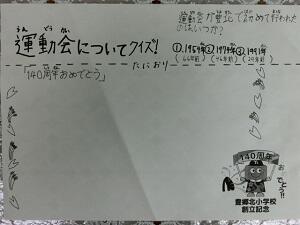 うんどうかい
運動会についてクイズ!
運動会が豊北で初めて行われた
のはいつか?
①.1959年②.1979年③.1991年
(66年前)(46年前)(29年前)
たにおり
「140周年おめでとう」
140周年
おめでとう!!
豊郷北小学校
創立記念